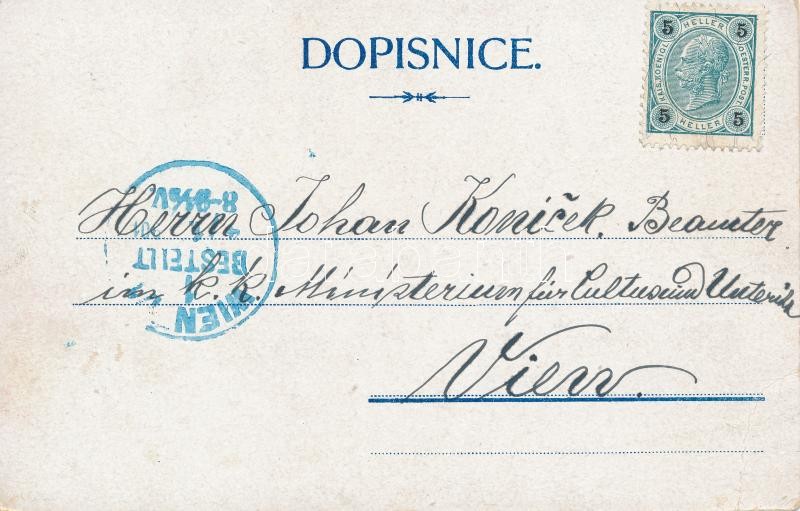 DOPISNICE.
5 HELLER 5
KAIS. KOENIGL. OESTERR. POST.
5 HELLER 5
Herrn Johan Koníček, Beamter
im k. k. Ministerium für Cultus und Unterik
Wien.
WIEN
1
BESTELLT
8-9½V